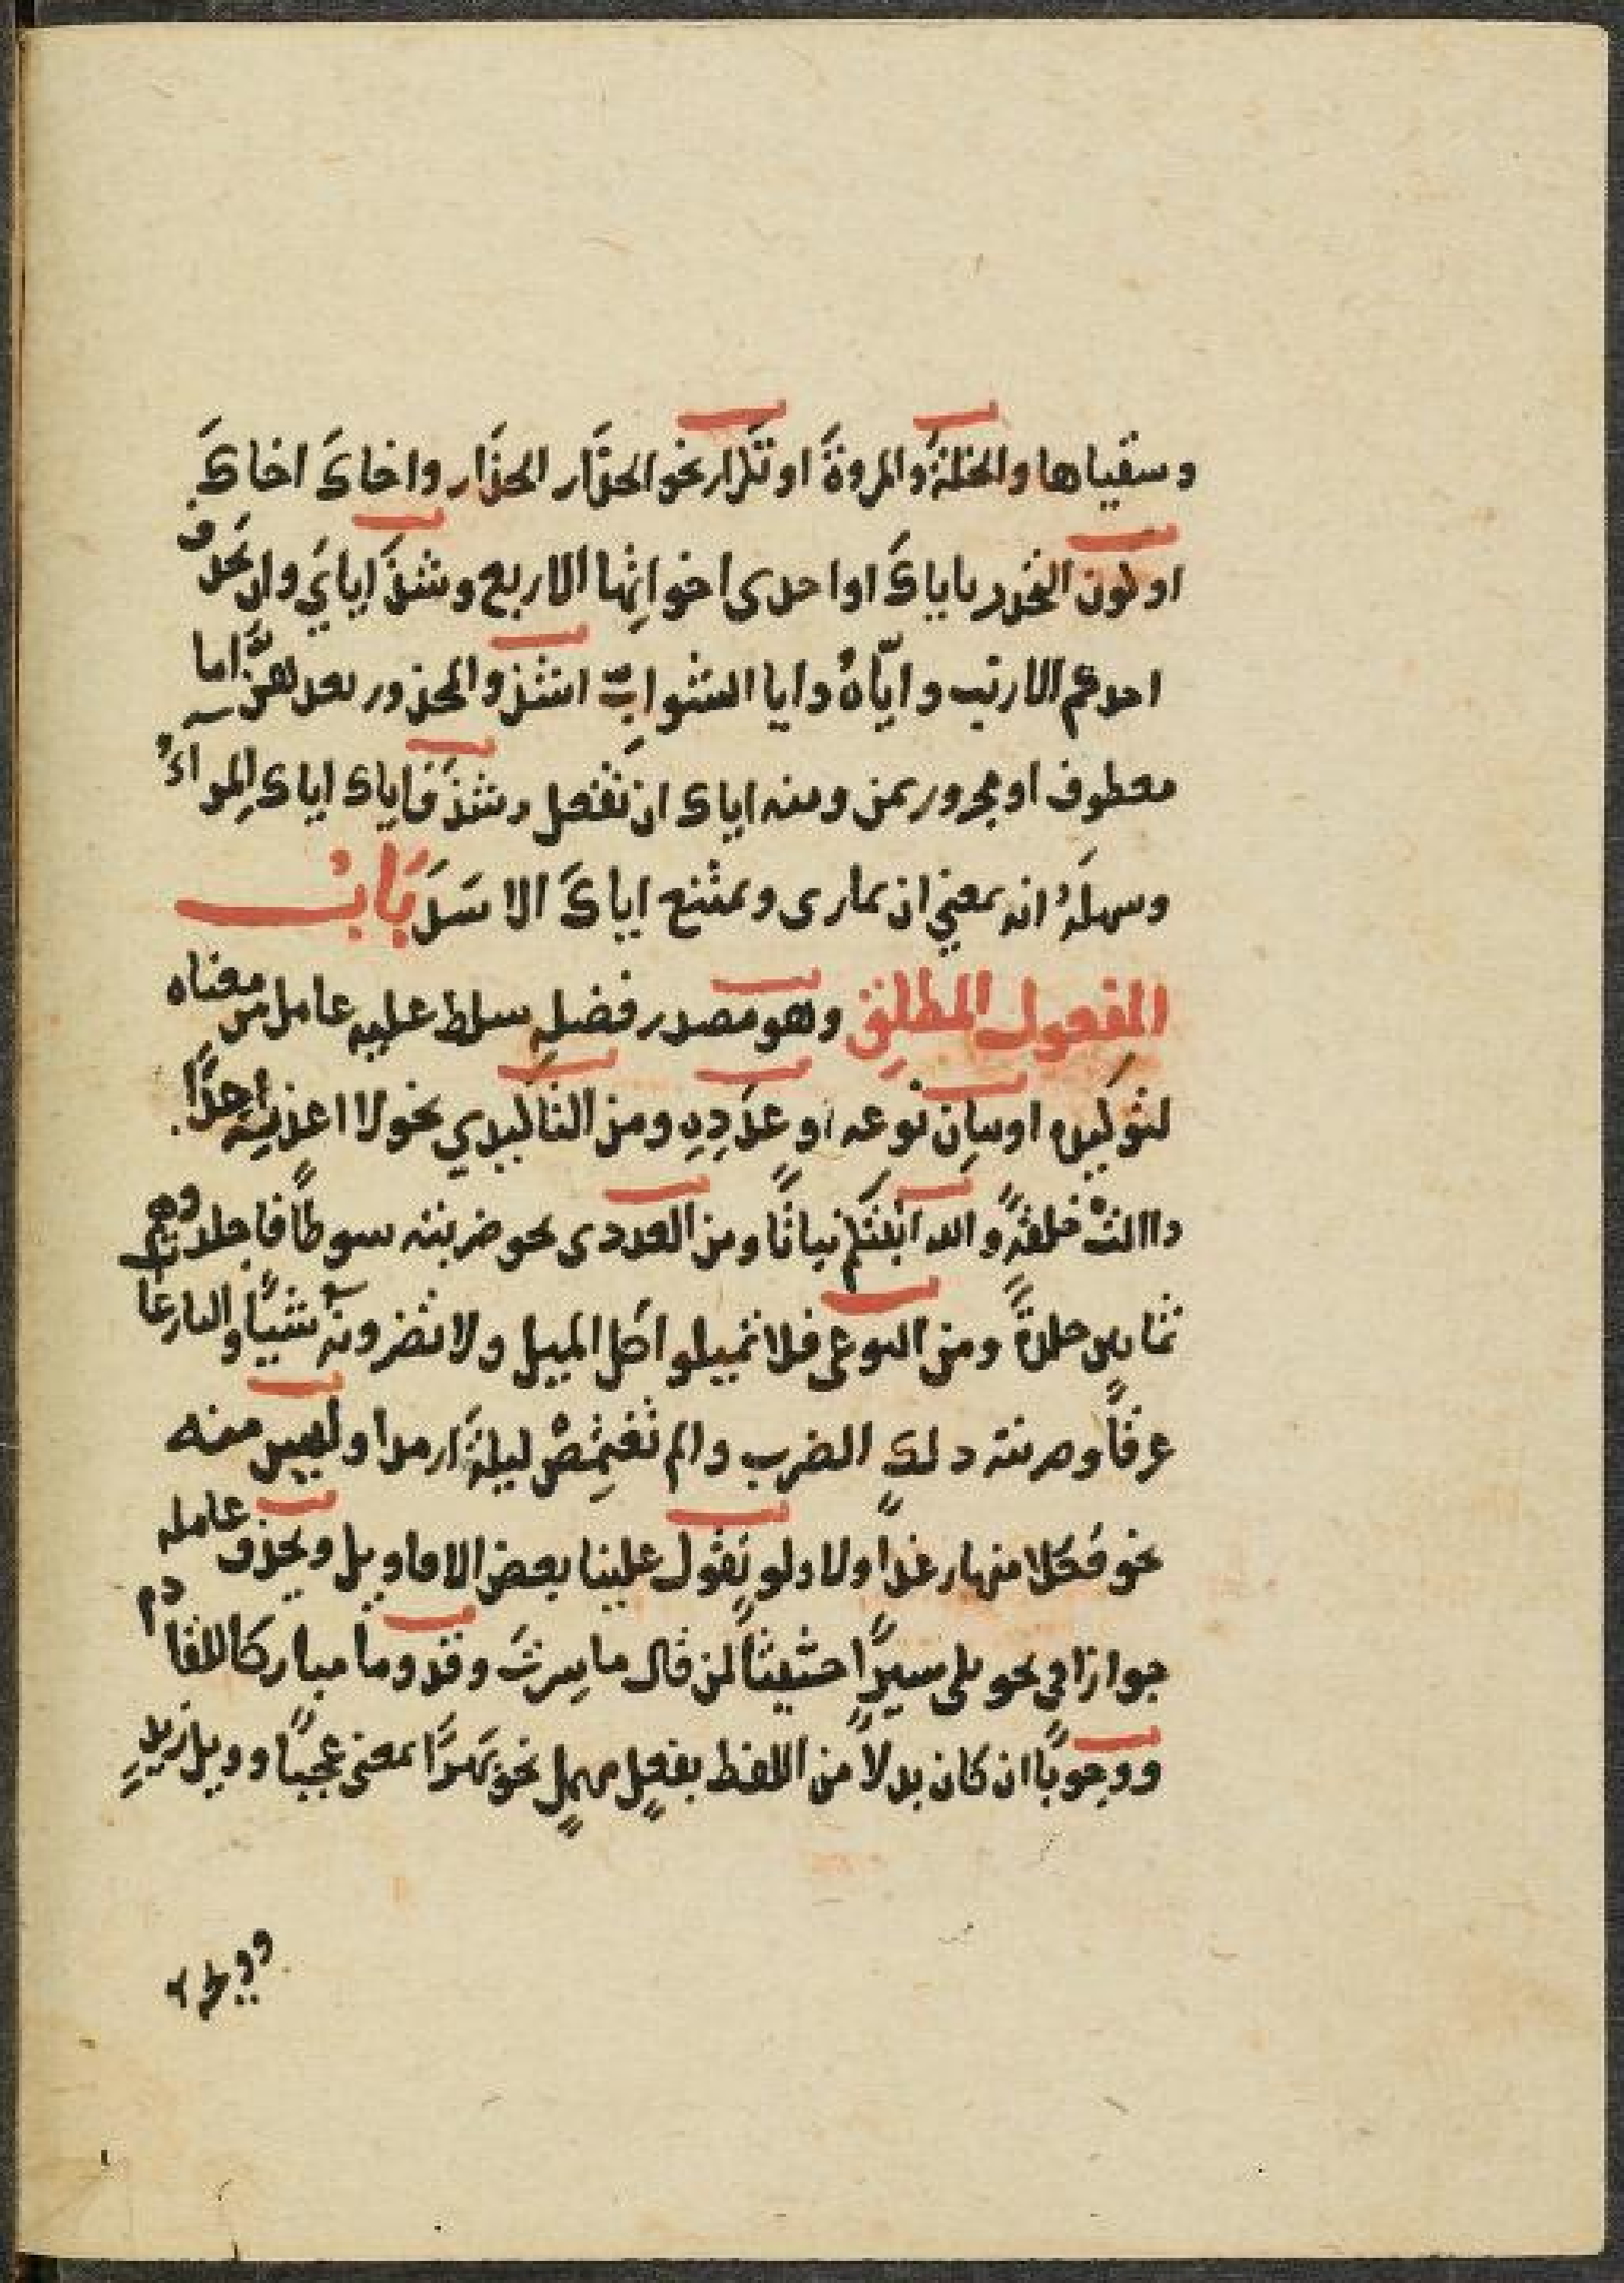 وسقياها والخلةَ والمروةَ او تكرار نحو الحذَار الحذَار واخاكَ اخاكَ
او كون المحذر باياكَ او احدى اخواتِها الاربع وشذَّ ايايَ وان يحذفَ
احدكم الارنب واياه وايا الشوابِّ اشذ والمحذور بعدهنَّ اما
معطوف او مجرور بمن ومنه اياك ان تفعل وشذَّ فاياك اياك المراءَ
وسهلَهُ انه بمعنى ان تمارى ويمتنع اياكَ الاسَدَ بَابُ
المفعول المطلقِ وهو مصدر فضلةٍ سلط عليه عامل من معناه
لتوكيده او بيان نوعه او عدَدِهِ ومن التاكيدي نحو لا اعذبه احدًا
والت حلفةً والله انبتكم نباتًا ومن العددى نحو ضربته سوطًا فاجلدوهم
ثمانين جلدةً ومن النوعى فلا تميلوا كل الميل ولا تضرونه شيئًا والنازعات
غرقًا وضربته ذلك الضرب والم تغتمِضْ ليلةَ ارمدا وليس منه
نحو فكلا منها رغدًا ولا ولو تقول علينا بعض الاقاويل ويحذف عامله
جوازا فى نحو بلى سيرًا حثيثًا لمن قال ما سرتَ وقدوما مباركا للقادم
ووجوبًا ان كان بدلًا من اللفظ بفعلٍ مهملٍ نحو بَهْرًا بمعنى عجبًا وويل زيدٍ